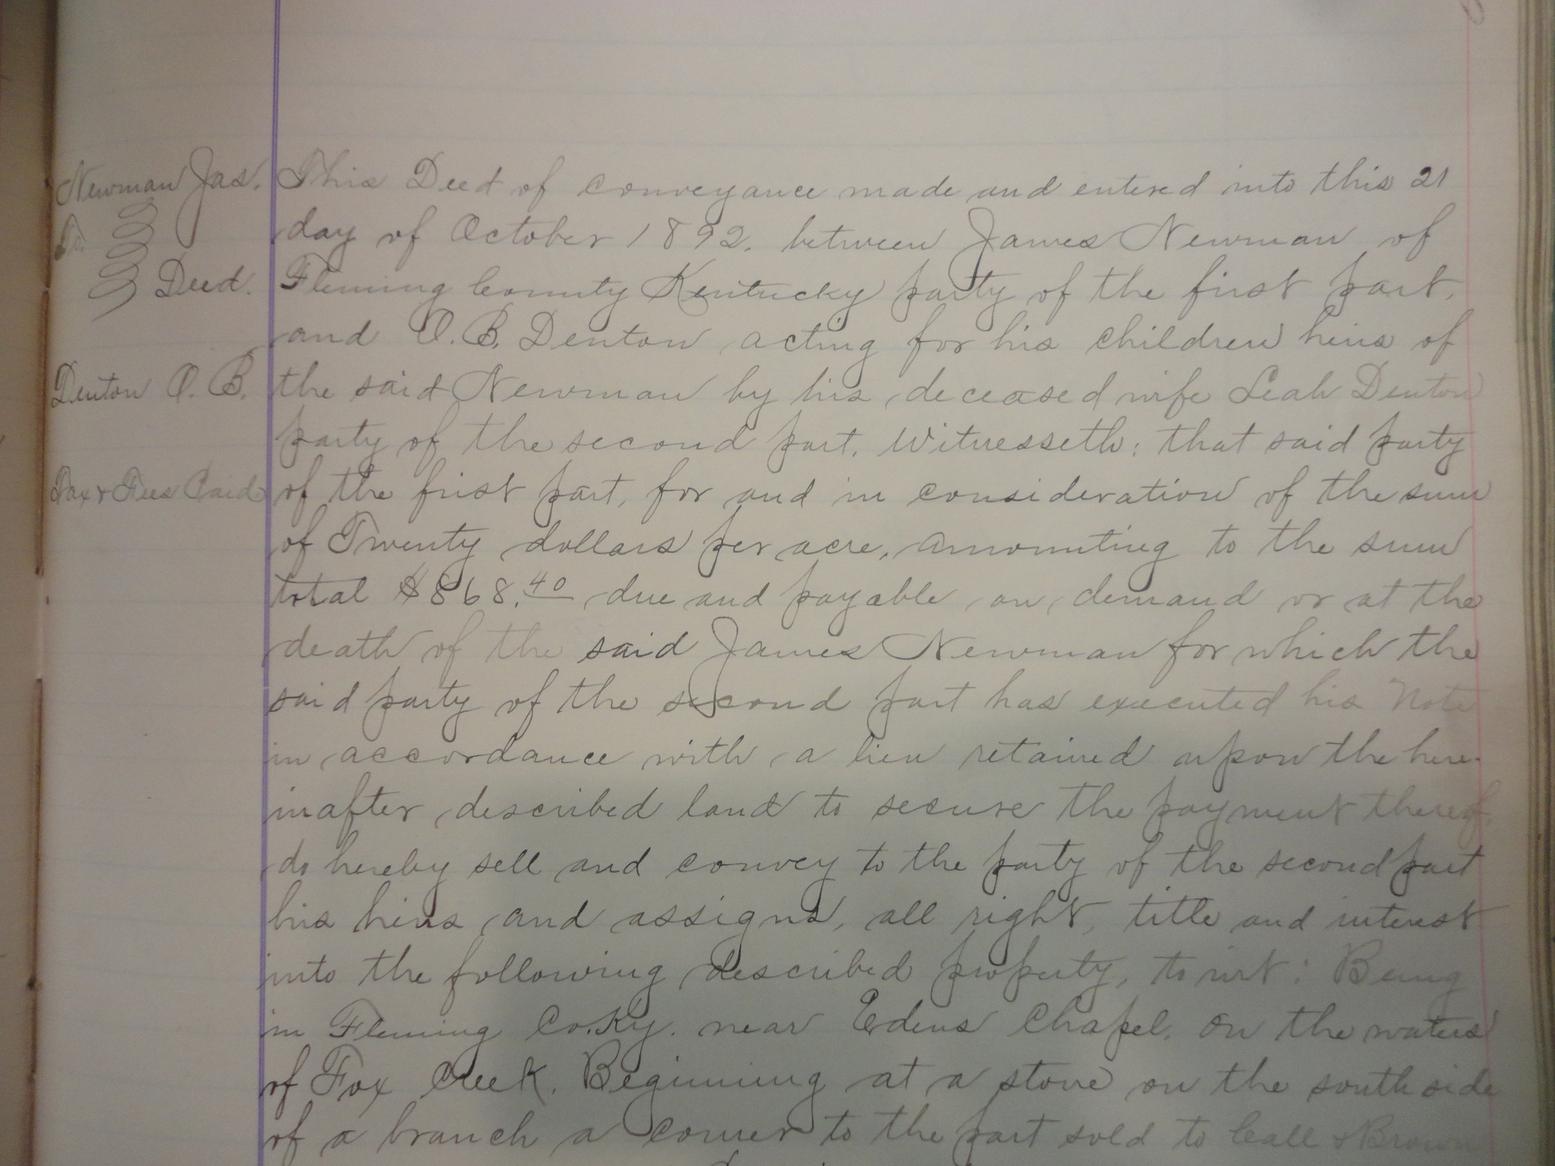 Newman Jas.
To
Deed.
Denton O. B.
Tax & Fees Paid
This Deed of conveyance made and entered into this 21
day of October 1892. between James Newman of
Fleming County Kentucky party of the first part,
and O. B. Denton acting for his children heirs of
the said Newman by his deceased wife Leah Denton
party of the second part. Witnesseth: that said party
of the first part, for and in consideration of the sum
of Twenty dollars per acre, amounting to the sum
total $868.40 due and payable on demand or at the
death of the said James Newman for which the
said party of the second part has executed his Note
in accordance with a lien retained upon the here-
inafter described land to secure the payment thereof
do hereby sell and convey to the party of the second part
his heirs and assigns, all right, title and interest
into the following described property, to wit: Being
in Fleming Co. Ky. near Edens Chapel, on the waters
of Fox Creek. Beginning at a stone on the south side
of a branch a corner to the part sold to Call & Brown